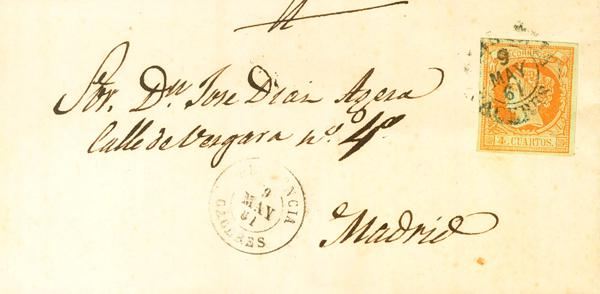 Sor. Dn. Jose Dian Agera
Calle de Vergara no. 4º
Madrid
CORREOS
9
MAY
61
CACERES
4 CUARTOS
9
MAY
61
CACERES